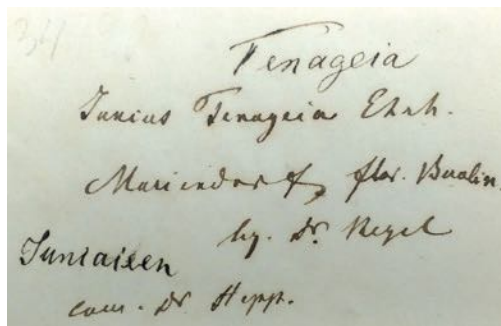 Tenageia
Juncus Tenageia Ehrh.
Mariendorf, flor. Berolin.
lg. Dr. Regel
Juncaceen
com. Dr. Hepp.